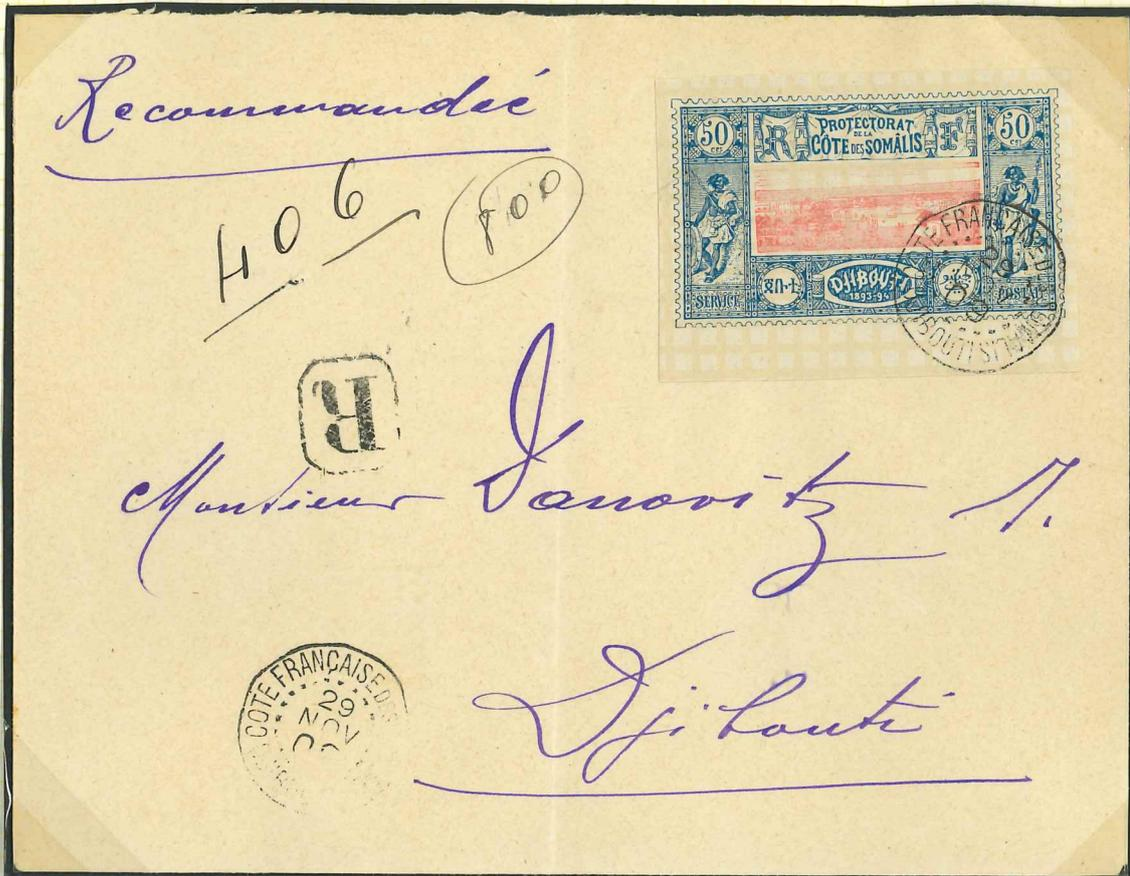 Recommandée
406
800
50 CES
R
PROTECTORAT
DE LA
CÔTE DES SOMÂLIS
F
50
SERVICE
DJIBOUTI
1893-94
POSTAL
CÔTE FRANÇAISE DES SOMALIS
DJIBOUTI
R
Monsieur Danovitz J.
Djibouti
COTE FRANÇAISE DES
29
NOV